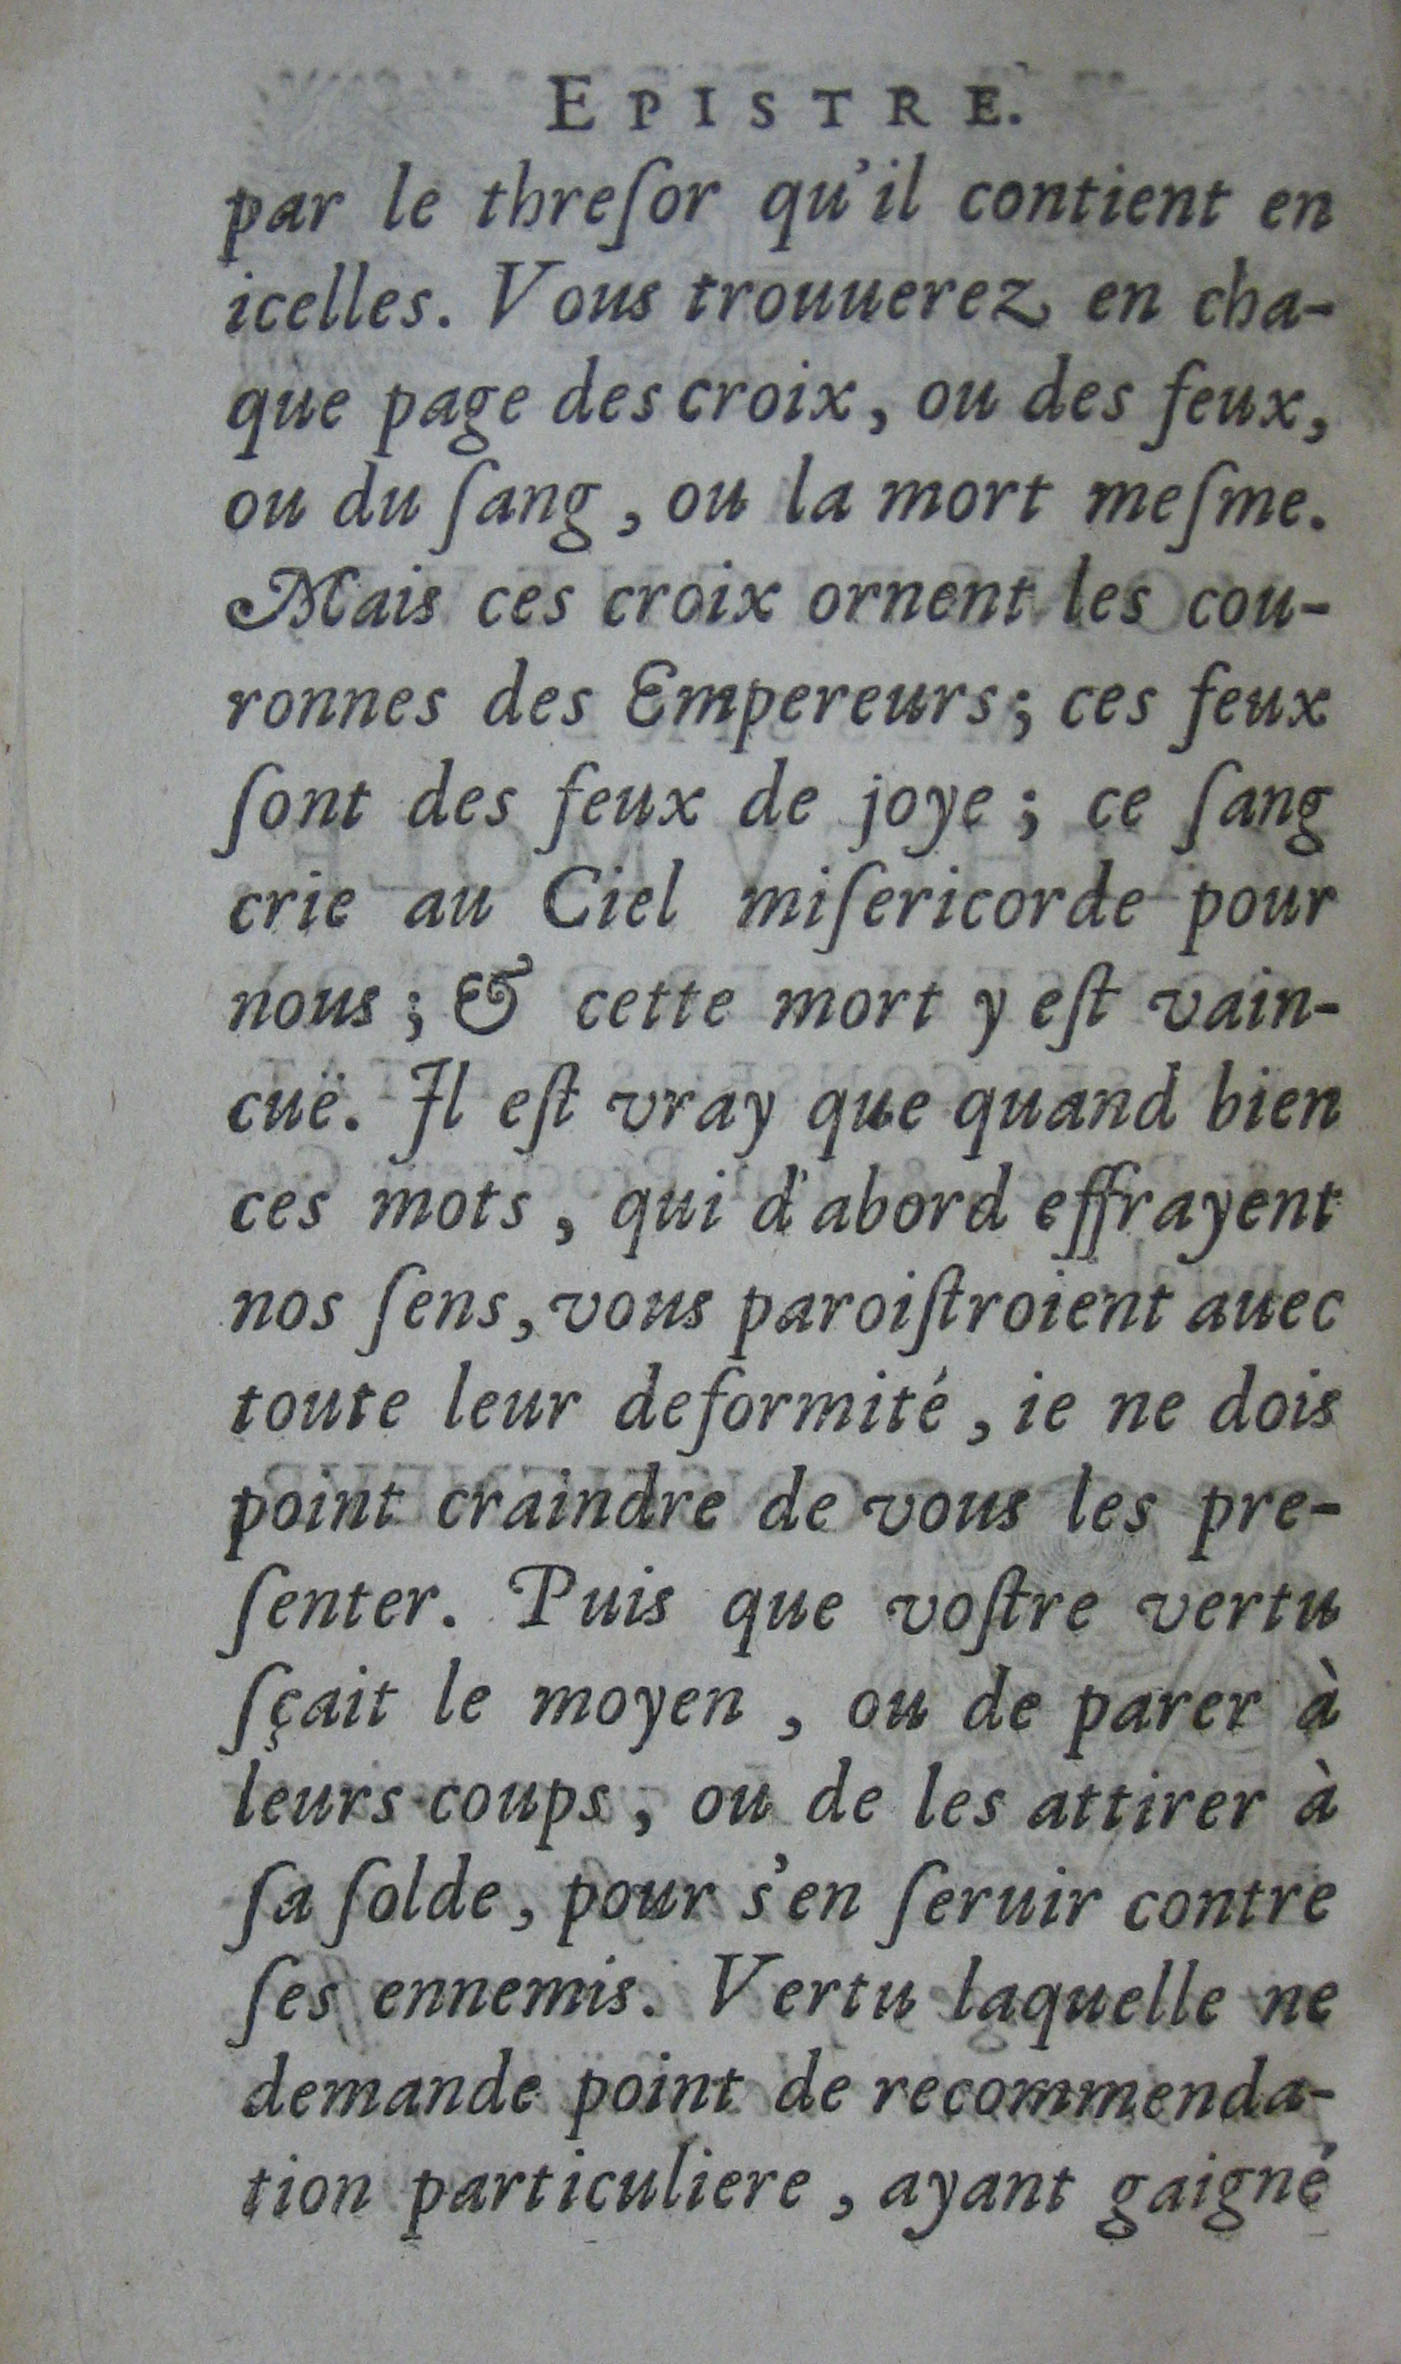 EPISTRE.
par le threſor qu'il contient en
icelles. Vous trouuerez en cha-
que page des croix, ou des feux,
ou du ſang, ou la mort meſme.
Mais ces croix ornent les cou-
ronnes des Empereurs; ces feux
ſont des feux de joye; ce ſang
crie au Ciel miſericorde pour
nous; & cette mort y eſt vain-
cuë. Il eſt vray que quand bien
ces mots, qui d'abord effrayent
nos ſens, vous paroiſtroient auec
toute leur deformité, ie ne dois
point craindre de vous les pre-
ſenter. Puis que voſtre vertu
ſçait le moyen, ou de parer à
leurs coups, ou de les attirer à
ſa ſolde, pour s'en ſeruir contre
ſes ennemis. Vertu laquelle ne
demande point de recommenda-
tion particuliere, ayant gaigné